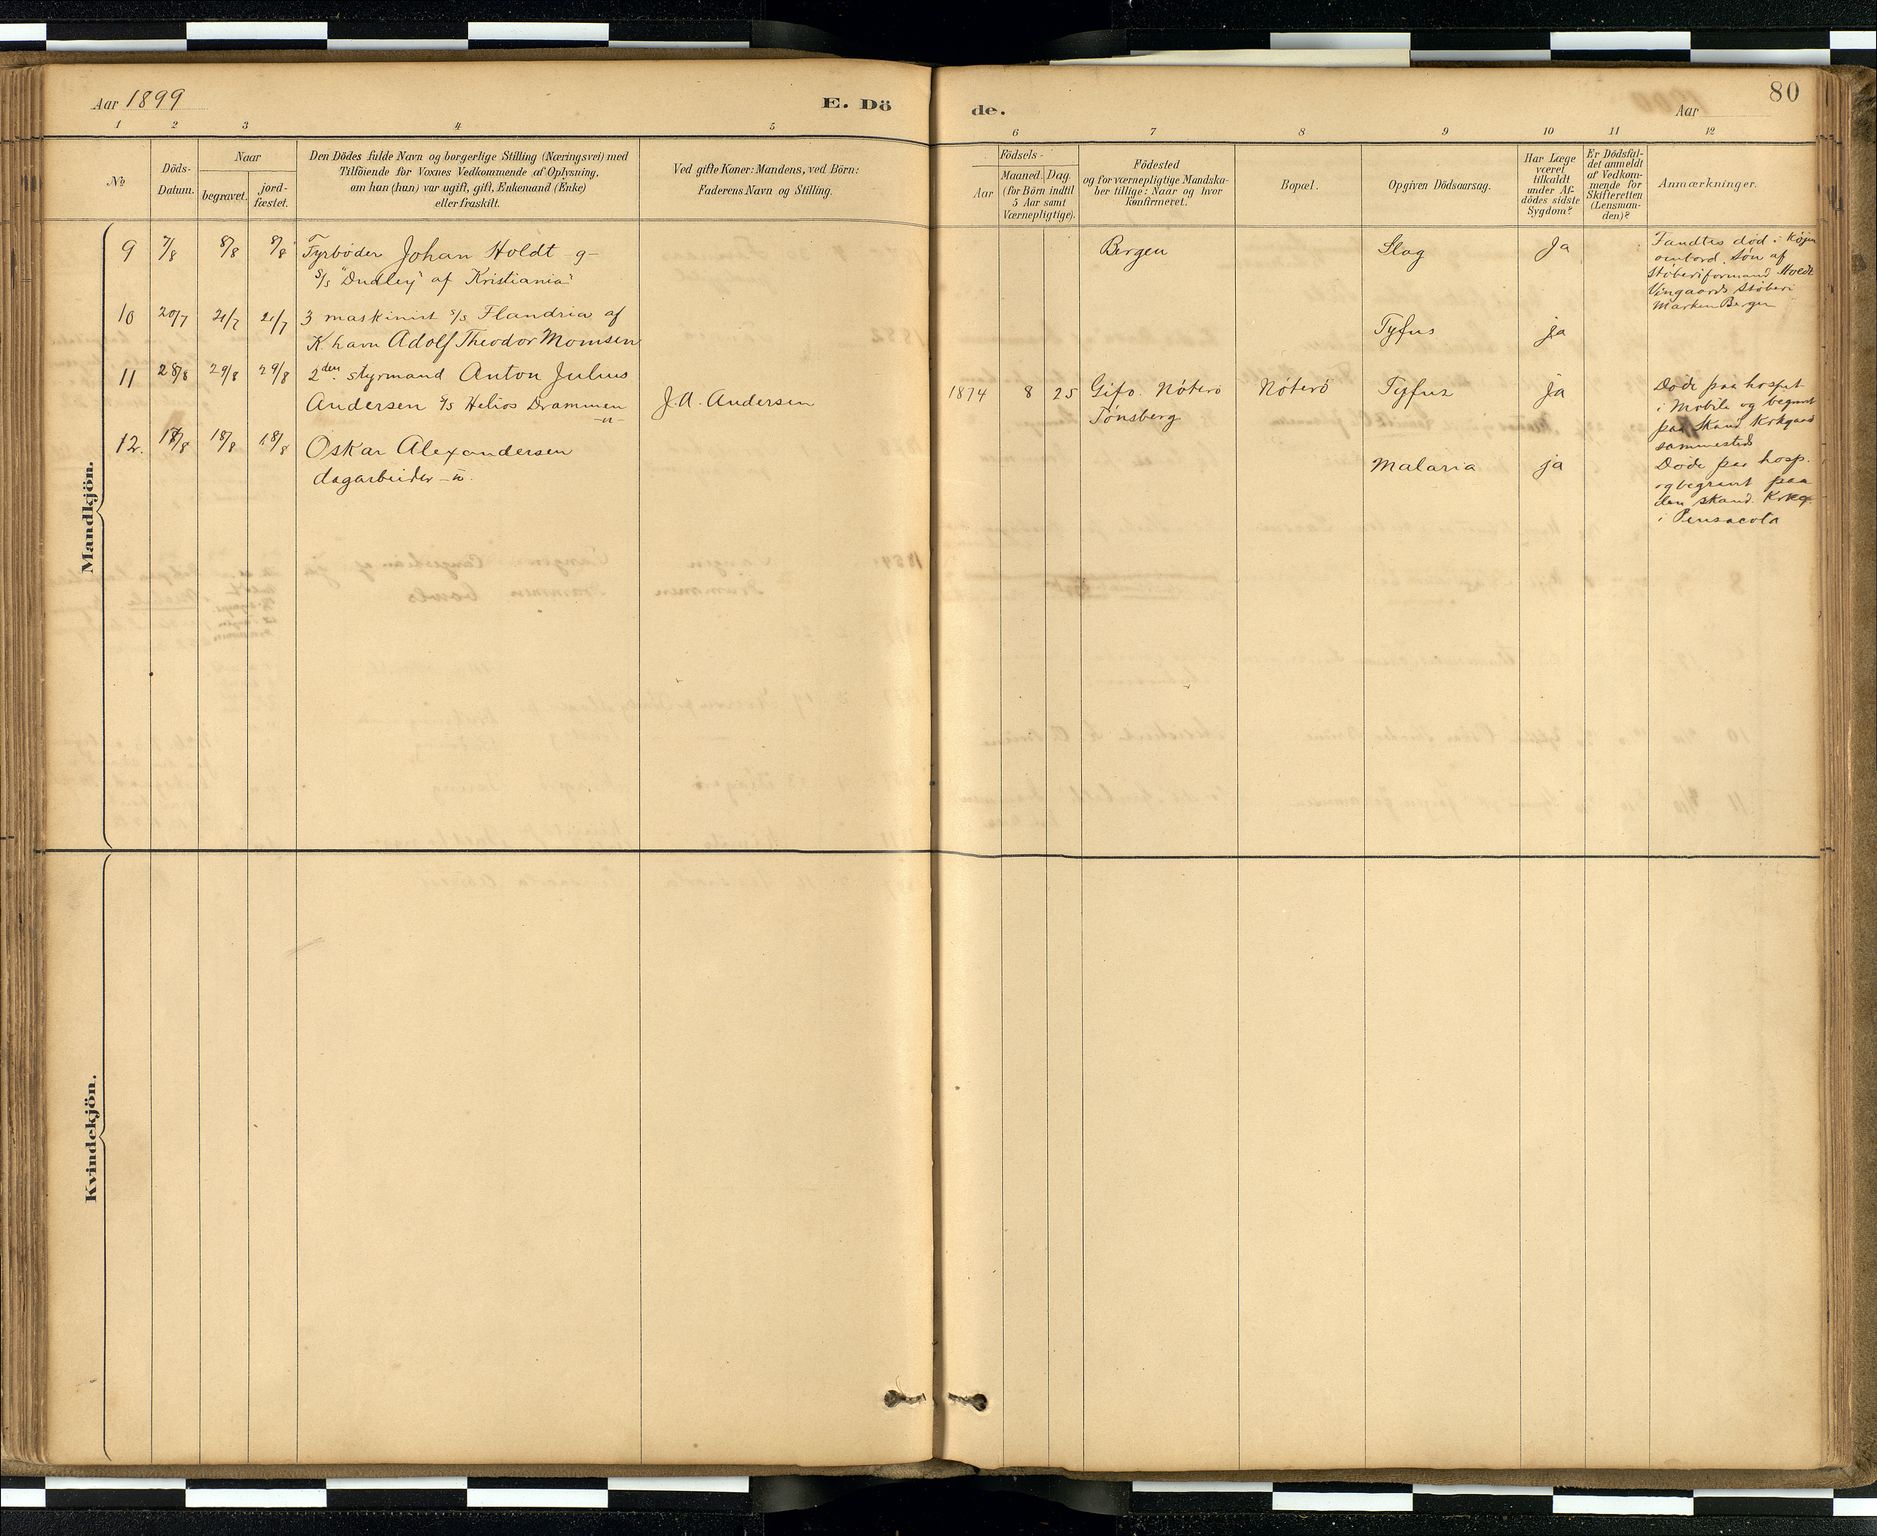 Aar 1899
E. Dö
de.
Aar
80
1 2 3 4 5 6 7 8 9 10 11 12
№
Döds-
Datum.
Naar
begravet.
jord-
fæstet.
Den Dödes fulde Navn og borgerlige Stilling (Næringsvei) med
Tilföiende for Voxnes Vedkommende af Oplysning,
om han (hun) var ugift, gift, Enkemand (Enke)
eller fraskilt.
Ved gifte Koner: Mandens, ved Börn:
Faderens Navn og Stilling.
Födsels-
Aar
Maaned. Dag.
(for Börn indtil
5 Aar samt
Værnepligtige).
Födested
og for værnepligtige Mandska-
ber tillige: Naar og hvor
konfirmeret.
Bopæl.
Opgiven Dödsaarsag.
Har Læge
været
tilkaldt
under Af-
dödes sidste
Sygdom?
Er Dödsfal-
det anmeldt
af Vedkom-
mende for
Skifteretten
(Lensman-
den)?
Anmærkninger.
Mandkjön.
9 7/8 8/8 8/8 Fyrbøder Johan Holdt -g-
S/s "Dudley" af Kristiania"
Bergen Slag Ja
Fandtes død i Køjen
ombord. Søn af
Støberiformand Holdt
Vingaards Støberi
Marken Bergen
10 20/7 21/7 21/7 3 maskinist s/s Flandria af
K havn Adolf Theodor Momsen
Tyfus ja
11 28/8 29/8 29/8 2den styrmand Anton Julius
Andersen s/s Helios Drammen
-u-
J. A. Andersen
1874 8 25 Nöterö
Tönsberg
Nöterö Tyfus ja
Döde paa hospit
i Mobile og begravt
paa Skand. Kirkgaard
sammesteds
12. 17/8 18/8 18/8 Oskar Alexandersen
dagarbeider -u-
Malaria ja
Döde paa hosp.
og begravt paa
den skand. Kirkeg.
i Pensacola
Kvindekjön.